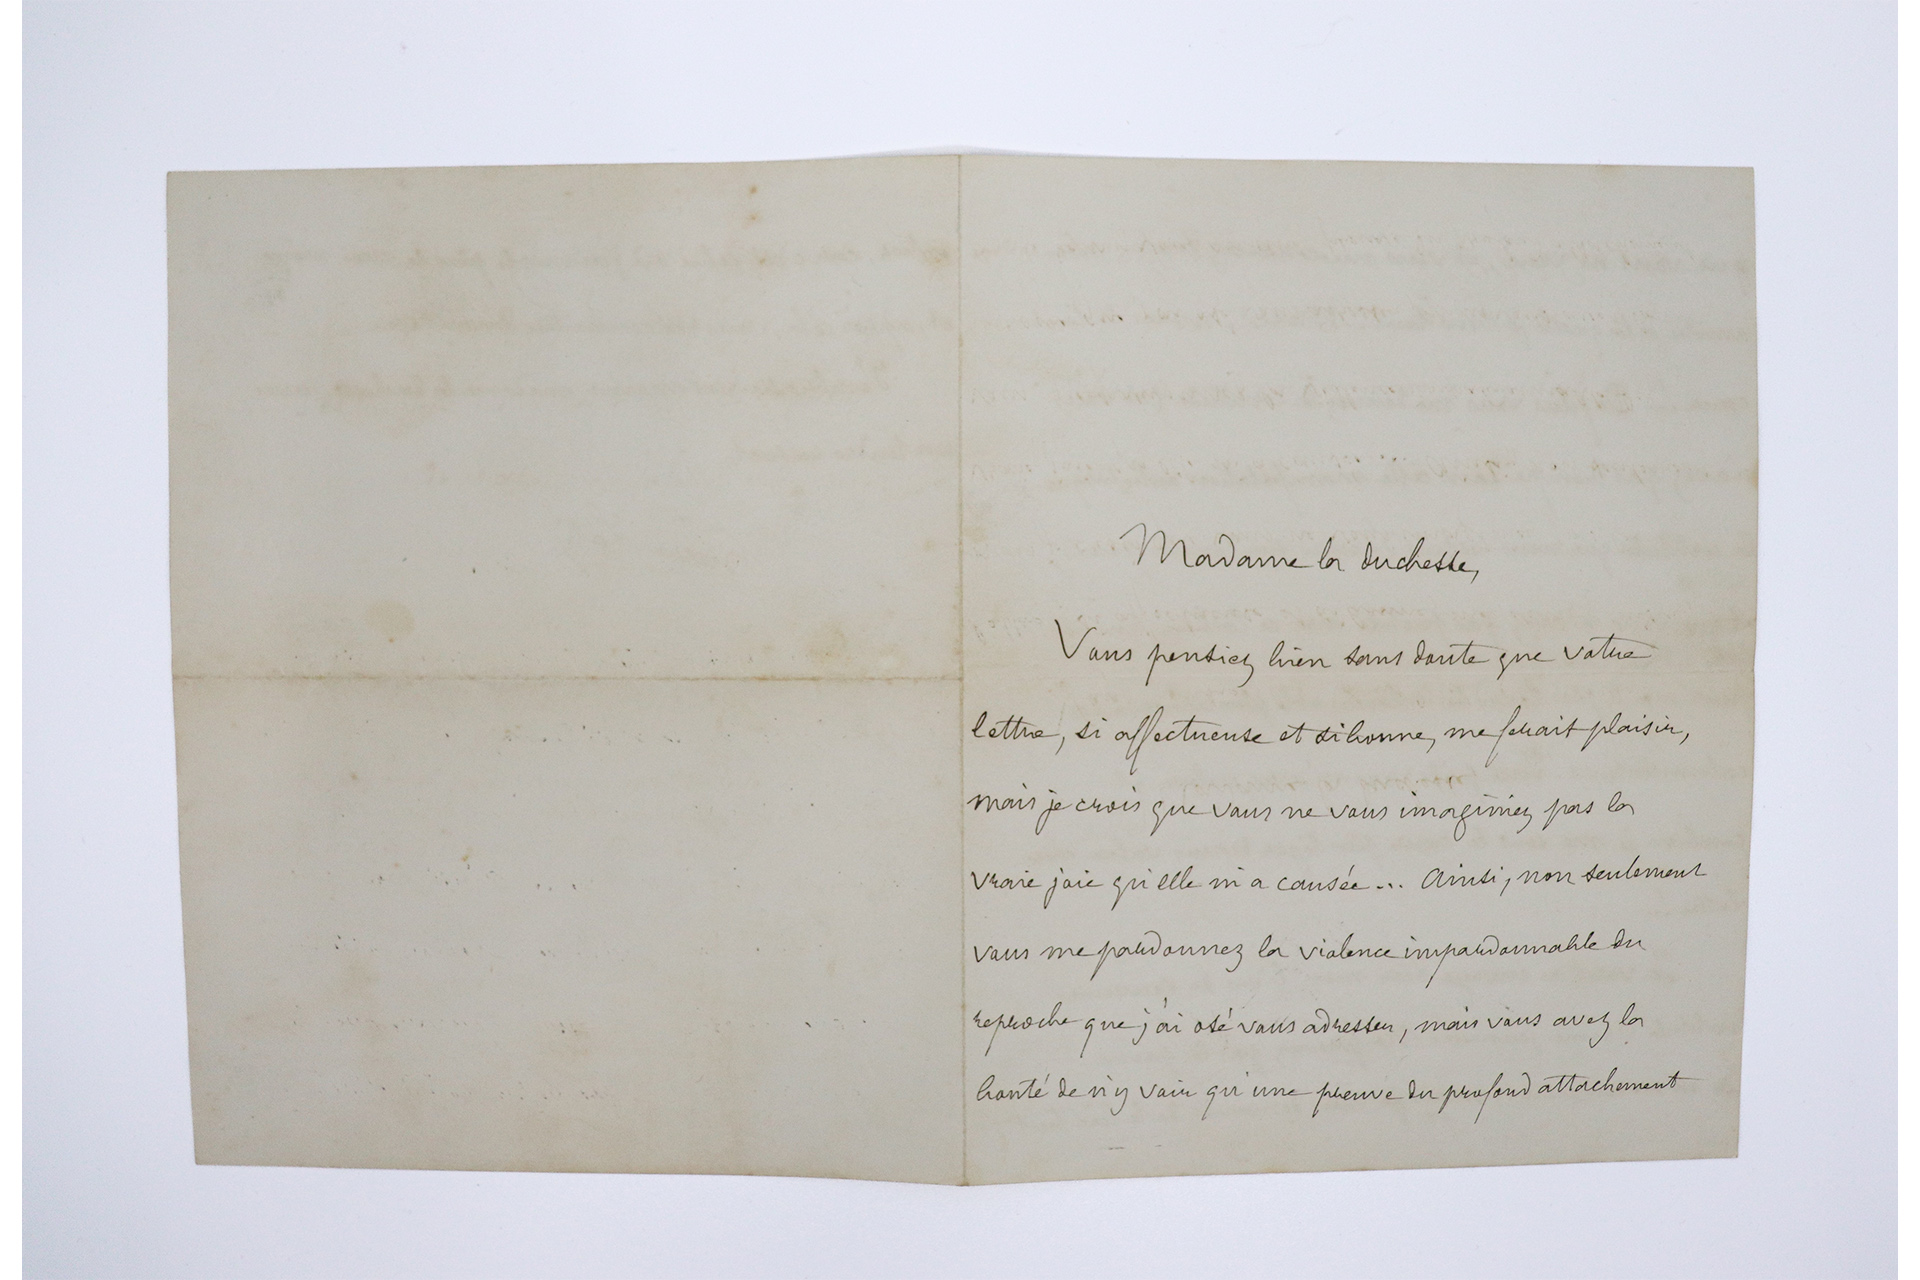 Madame la duchesse,
Vous pensiez bien sans doute que votre
lettre, si affectueuse et si bonne, me ferait plaisir,
mais je crois que vous ne vous imaginiez pas la
vraie joie qu'elle m'a causée... Ainsi, non seulement
vous me pardonnez la violence impardonnable du
reproche que j'ai osé vous adresser, mais vous avez la
bonté de n'y voir qu'une preuve du profond attachement